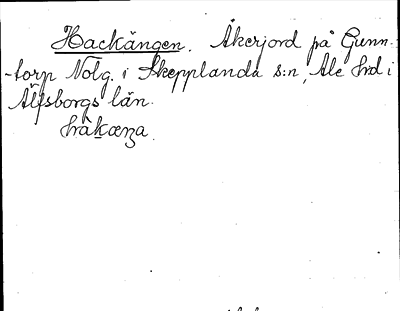 Hackängen. Åkerjord på Gunn-
-torp Nolg. i Skepplanda s:n, Ale hd i
Älfsborgs län.